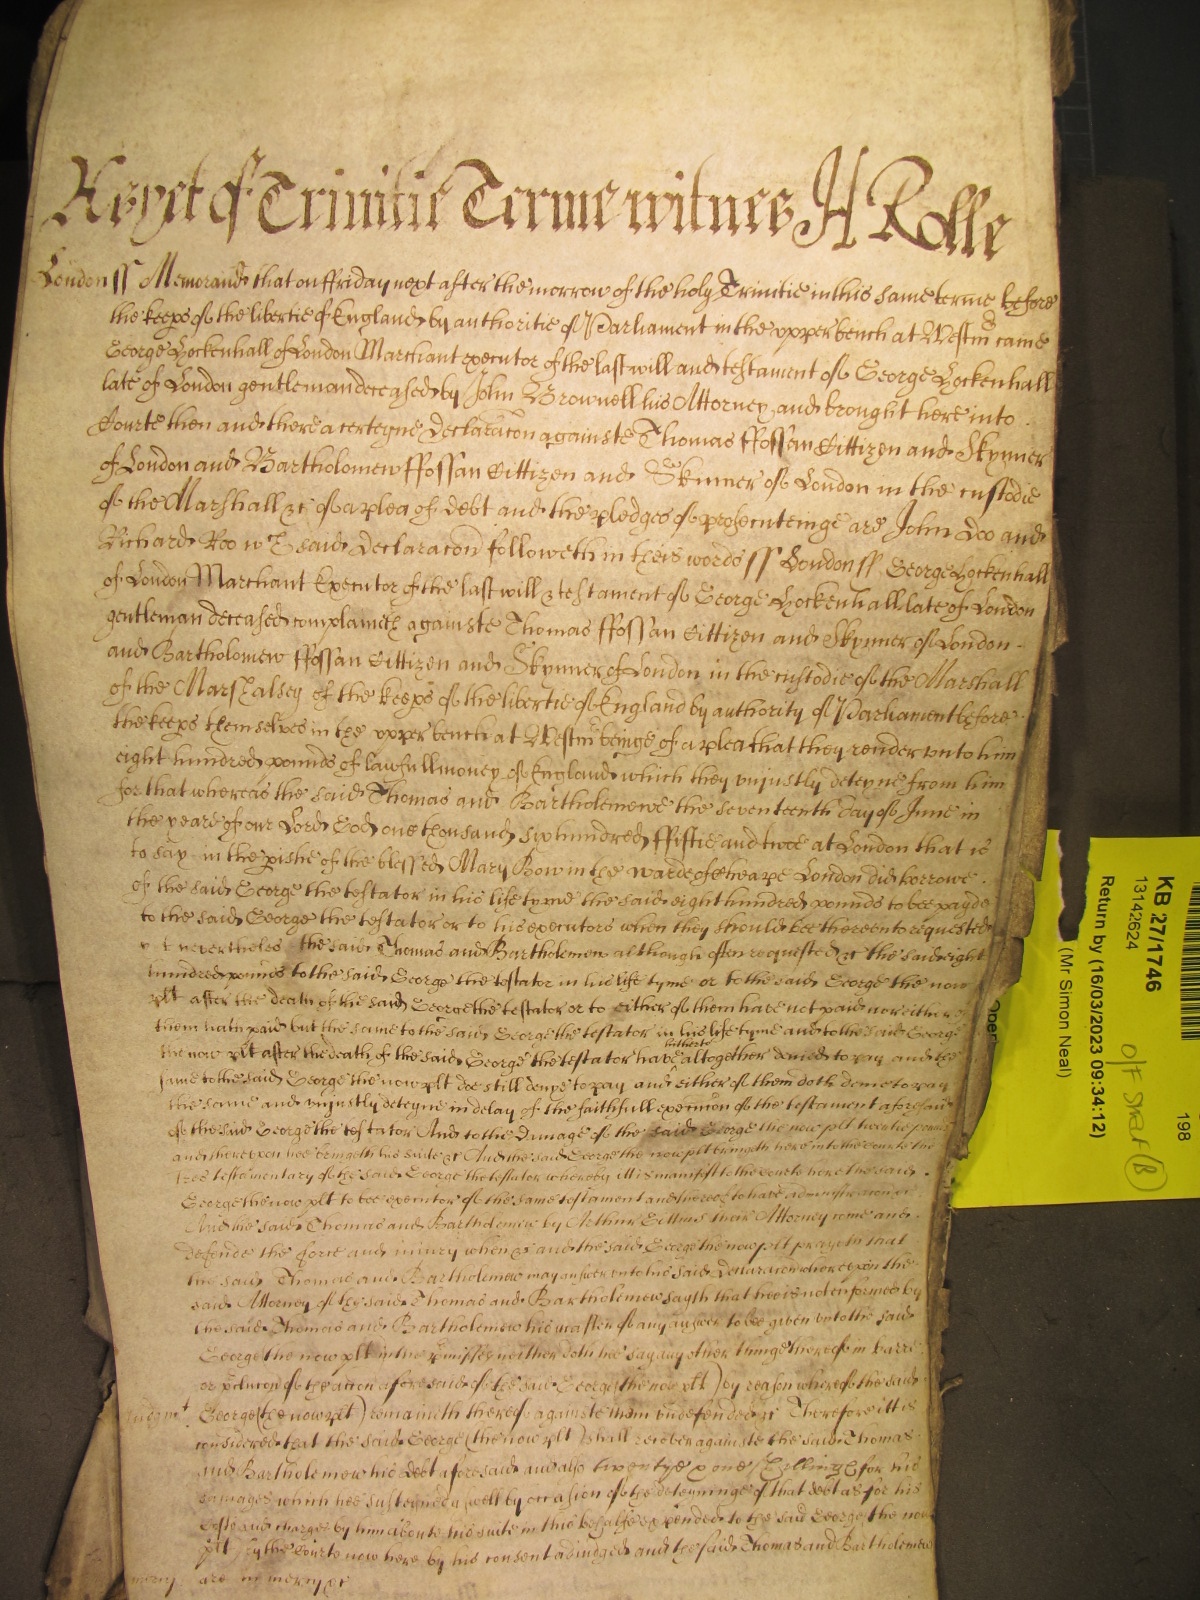 Yet of Trinitie Terme witnes H Rolle
London ss Memorand that on ffriday next after the morrow of the holy Trinitie in this same terme before
the keeps of the libertie of England by authoritie of Parliament in the upper bench at Westm came
George Lockenhall of London Marchant executor of the last will and testament of George Lockenhall
late of London gentleman deceased by John Brownell his Attorney and brought here into
Courte then and there a certeyne Declaracon againste Thomas ffossan Cittizen and Skynner
of London and Bartholomew ffossan Cittizen and Skinner of London in the custodie
of the Marshall &c of a plea of debt and the pledges of prosecuteinge are John Doo and
Richard Roo wch said Declaracon followeth in theis words ss London ss George Lockenhall
of London Marchant Executor of the last will & testament of George Lockenhall late of London
gentleman deceased complaineth againste Thomas ffossan Cittizen and Skynner of London
and Bartholomew ffossan Cittizen and Skynner of London in the custodie of the Marshall
of the Marshalsey of the keeps of the libertie of England by authority of Parliament before
the keeps themselves in the upper bench at Westm beinge of a plea that they render unto him
eight hundred pounds of lawfull money of England which they unjustly deteyne from him
for that whereas the said Thomas and Bartholemewe the seventeenth day of June in
the yeare of our Lord God one thousand six hundred ffiftie and twoe at London that is
to say in the pishe of the blessed Mary Bow in the warde of Cheape London did borrowe
of the said George the testator in his life tyme the said eight hundred pounds to bee payde
to the said George the testator or to his executors when they should bee thereunto requested
nevertheles the said Thomas and Bartholemew although often requested &c the said eight
hundred pounds to the said George the testator in his life tyme or to the said George the now
plt after the death of the said George the testator or to either of them have not paid nor either of
them hath paid but the same to the said George the testator in his life tyme and to the said George
the now plt after the death of the said George the testator have hitherto altogether denied to pay and the
same to the said George the now plt doe still denye to pay and either of them doth denie to pay
the same and unjustly deteyne in delay of the faithfull execution of the testament aforesaid
of the said George the testator And to the damage of the said George the now plt twentie pounds
and thereupon hee bringeth his suite &c And the said George the now plt bringeth here into the Courte the
lres testamentary of the said George the testator whereby itt is manifest to the Courte here the said
George the now plt to bee executor of the same testament and thereof to have administracon &c
And the said Thomas and Bartholemew by Arthur their Attorney come and
defende the force and injury when &c and the said George the now plt prayeth that
the said Thomas and Bartholemew may answer unto his said Declaracon whereupon the
said Attorney of the said Thomas and Bartholemew sayth that hee is not enformed by
the said Thomas and Bartholemew his master of any answer to bee given unto the said
George the now plt in the pmisses neither doth hee say any other thinge thereof in barre
or pclucon of the accon aforesaid of the said George (the now plt) by reason whereof the said
Judgmt George (the now plt) remaineth thereof againste them undefended &c Therefore itt is
considered that the said George (the now plt) shall recover againste the said Thomas
and Bartholemew his debt aforesaid and also twentye & one shillings for his
damages which hee susteyned aswell by occasion of the deteyninge of that debt as for his
Costs and charges by him aboute his suite in this behalfe expended to the said George the now
plt by the Courte now here by his consent adjudged and the said Thomas and Bartholemew
mercy are in mercy &c
KB 27/1746
13142624
Return by (16/03/2023 09:34:12)
(Mr Simon Neal)
198
Open